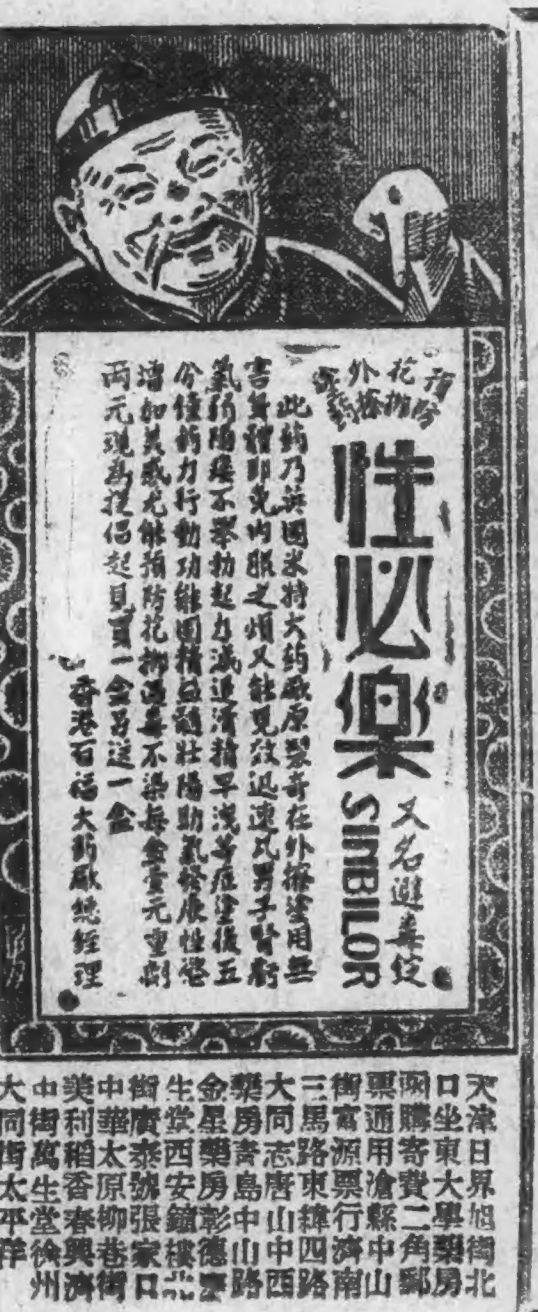 預防
花柳
外搽
藥
性必樂
SIMBILOR
又名避毒錠
此药乃英國米特大药廠原製奇在外搽塗用無
害身體即免内服之煩又能見效迅速凡男子腎虧
氣弱陽痿不舉勃起力減退滑精早洩等症塗後五
分鐘药力行動功能固精益髓壯陽助氣發展性慾
增加美感尤能預防花柳濁毒不染每盒壹元重劑
两元現為提倡起見買一盒另送一盒
香港百福大药廠總經理
天津日界旭街北
口坐東大學藥房
函購寄費二角郵
票通用滄縣中山
街富源票行濟南
三馬路東緯四路
大同志唐山中西
藥房青島中山路
金星藥房彰德
生堂西安鐘樓北
街廣泰號張家口
中華太原柳巷街
美利稻香春興濟
中街萬生堂徐州
大同街太平洋